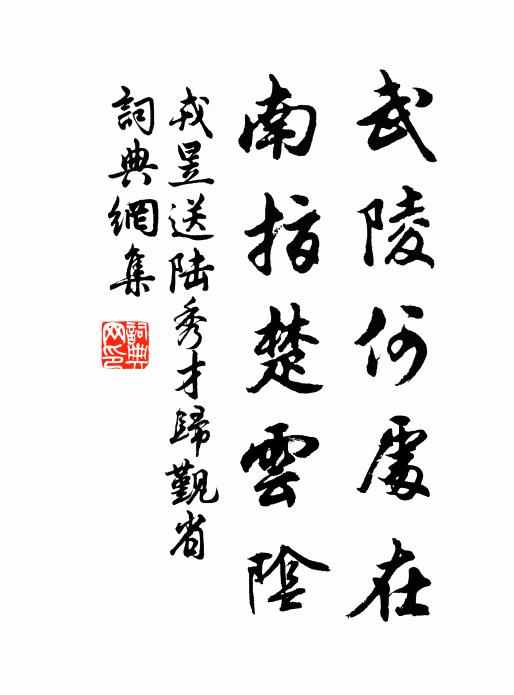 武陵何處在
南指楚雲陰
戎昱送陸秀才歸覲省
詞典網集
詞典網印